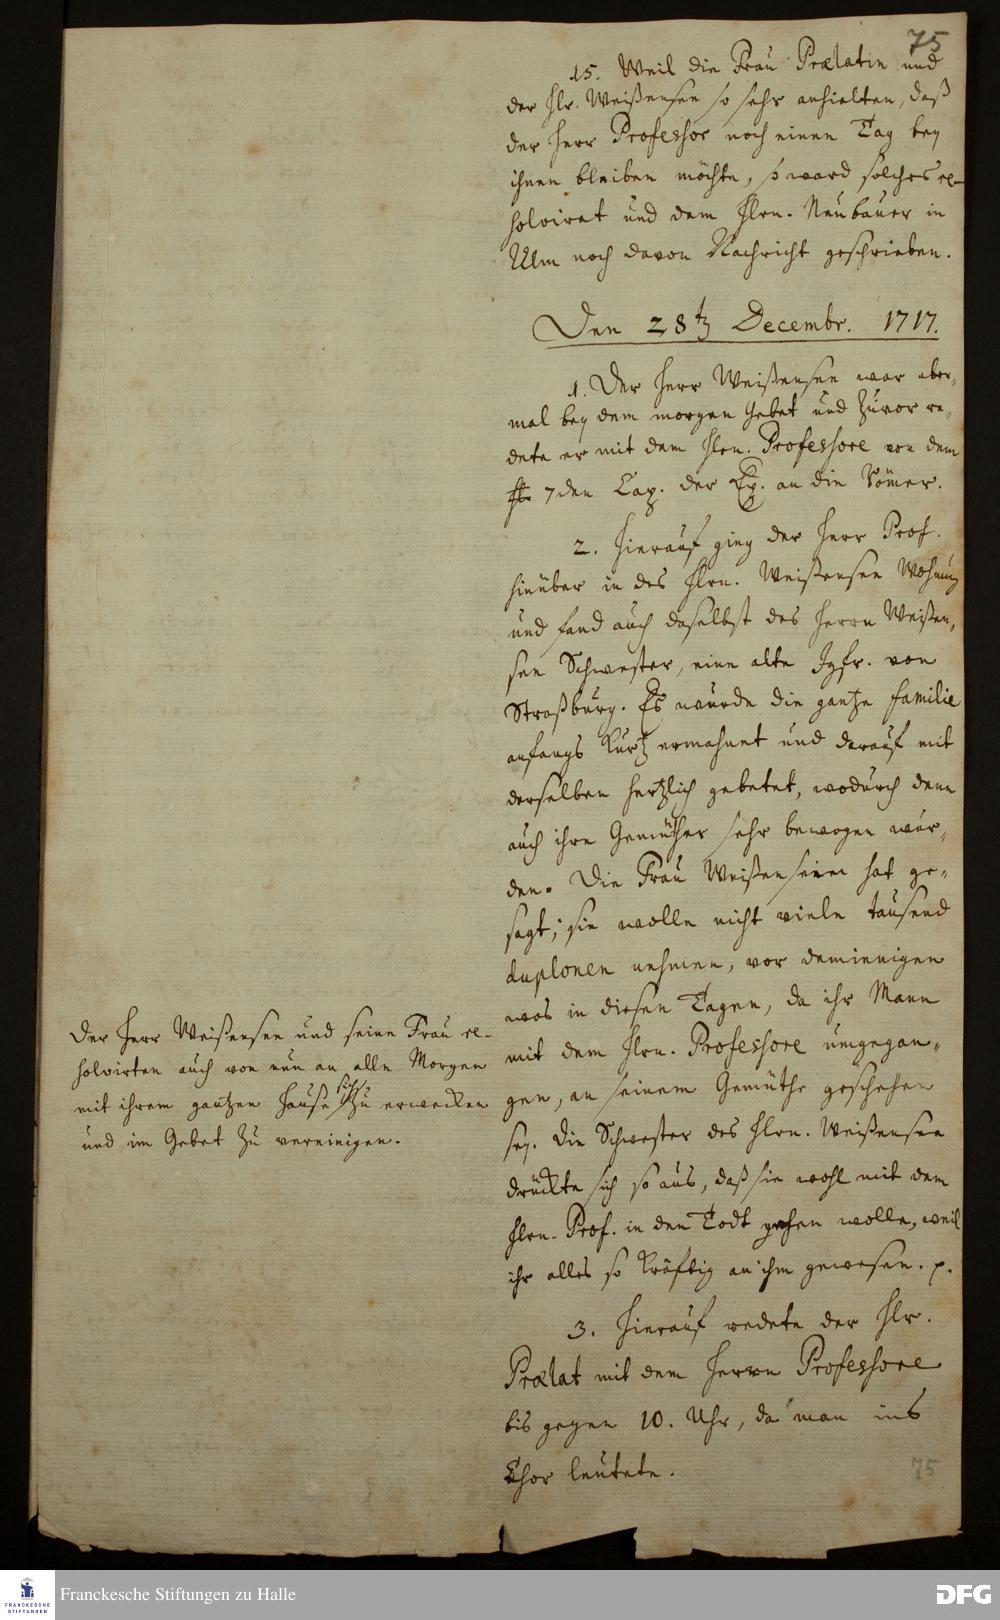 75
15. Weil die Frau Prælatin und
der Hr. Weißensee so sehr anhielten, daß
der Herr Professor noch einen Tag bey
ihnen bleiben möchte, so ward solches re-
solviret und dem Hrn. Neubauer in
Ulm noch davon Nachricht geschrieben.
Den 28ten Decembr. 1717.
1. Der Herr Weißensee war aber-
mal bey dem morgen Gebet und zuvor re-
dete er mit dem Hrn. Professore von dem
7den Cap. der Ep. an die Römer.
2. Hierauf ging der Herr Prof.
hinüber in des Hrn. Weißensee Wohnung
und fand auch daselbst des Herrn Weißen-
see Schwester, eine alte Jgfr. von
Straßburg. Es wurde die gantze familie
anfangs kurtz ermahnet und darauf mit
derselben hertzlich gebetet, wodurch denn
auch ihre Gemüther sehr bewogen wur-
den. Die Frau Weißenseein hat ge-
sagt; sie wolle nicht viele tausend
duplonen nehmen, vor demienigen
was in diesen Tagen, da ihr Mann
mit dem Hrn. Professore umgegan-
gen, an seinem Gemüthe geschehen
sey. Die Schwester des Hrn. Weißensee
drückte sich so aus, daß sie wohl mit dem
Hrn. Prof. in den Todt gehen wolle, weil
ihr alles so kräftig an ihm gewesen. p.
3. Hierauf redete der Hr.
Prælat mit dem Herrn Professore
bis gegen 10. Uhr, da man ins
Chor leutete.
75
Der Herr Weißensee und seine Frau re-
solvirten auch von nun an alle Morgen
mit ihrem gantzen Hause sich zu erwecken
und im Gebet zu vereinigen.
FRANCKESCHE
STIFTUNGEN
Franckesche Stiftungen zu Halle
DFG